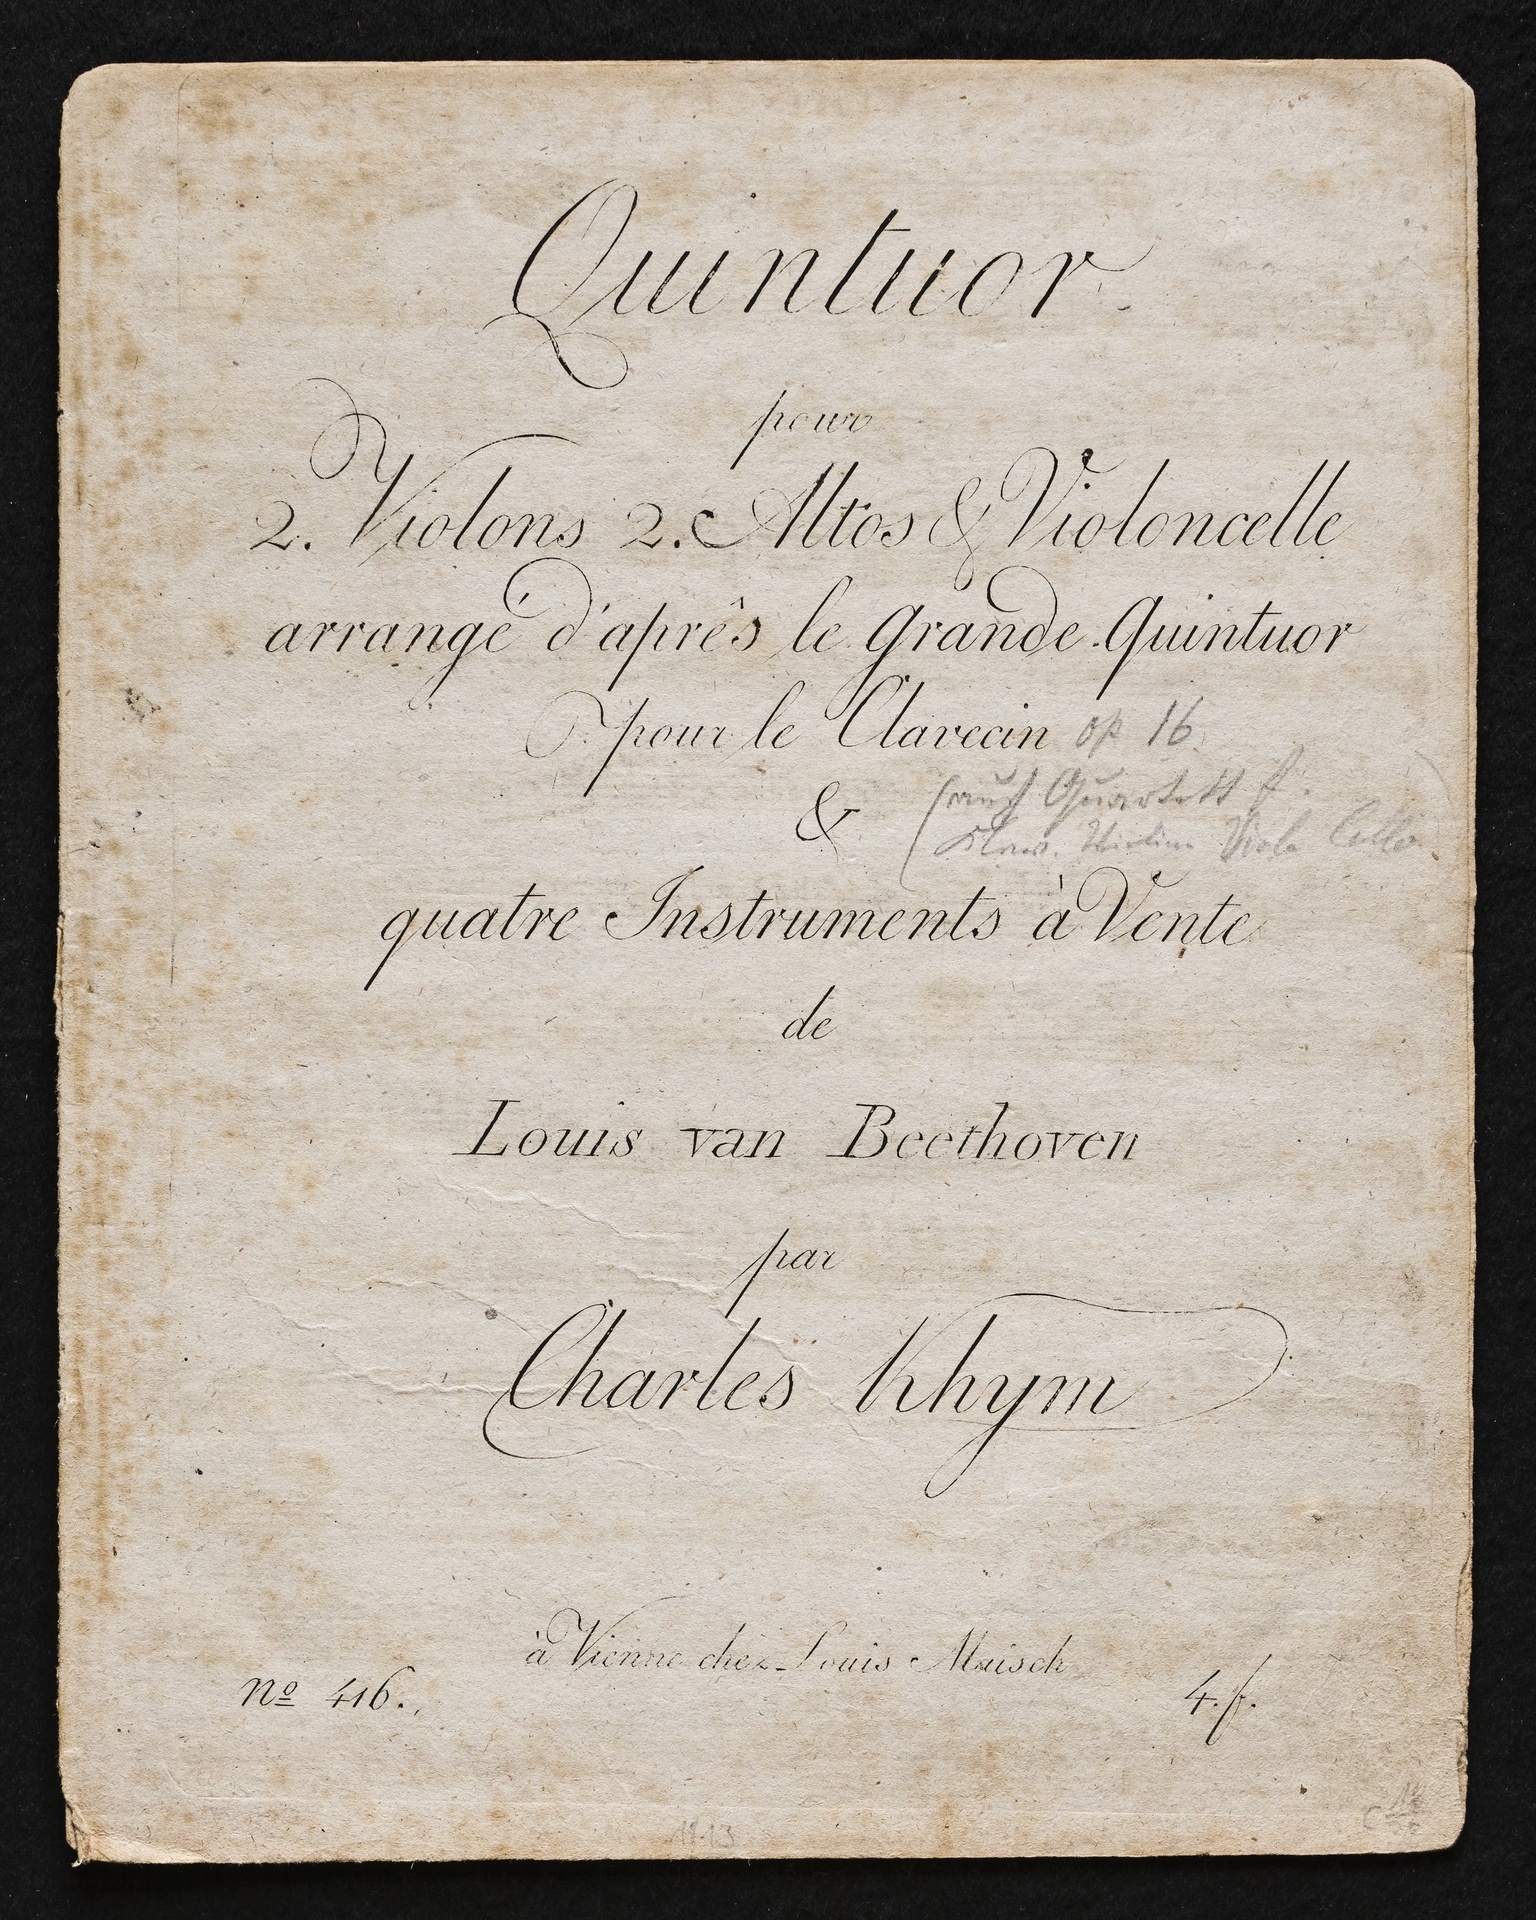 Quintuor
pour
2. Violons 2. Altos & Violoncelle
arrangé d'aprês le Grande Quintuor
pour le Clavecin op 16.
& (auch Quartett f.
Klav. Violine Viola Cello
quatre Instruments à Vente
de
Louis van Beethoven
par
Charles Khym
à Vienne chez Louis Maisch
nº 416.
4.f.